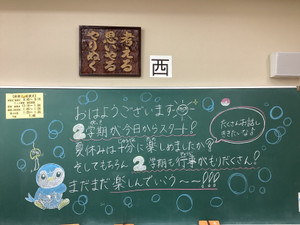 考える
思いやる
やりぬく
西
おはようございます
2学期が今日からスタート!
夏休みは十分に楽しめましたか?
そしてもちろん 2学期も行事がもりだくさん!
まだまだ楽しんでいこう〜〜!!!
たくさんお話し
ききたいなよ